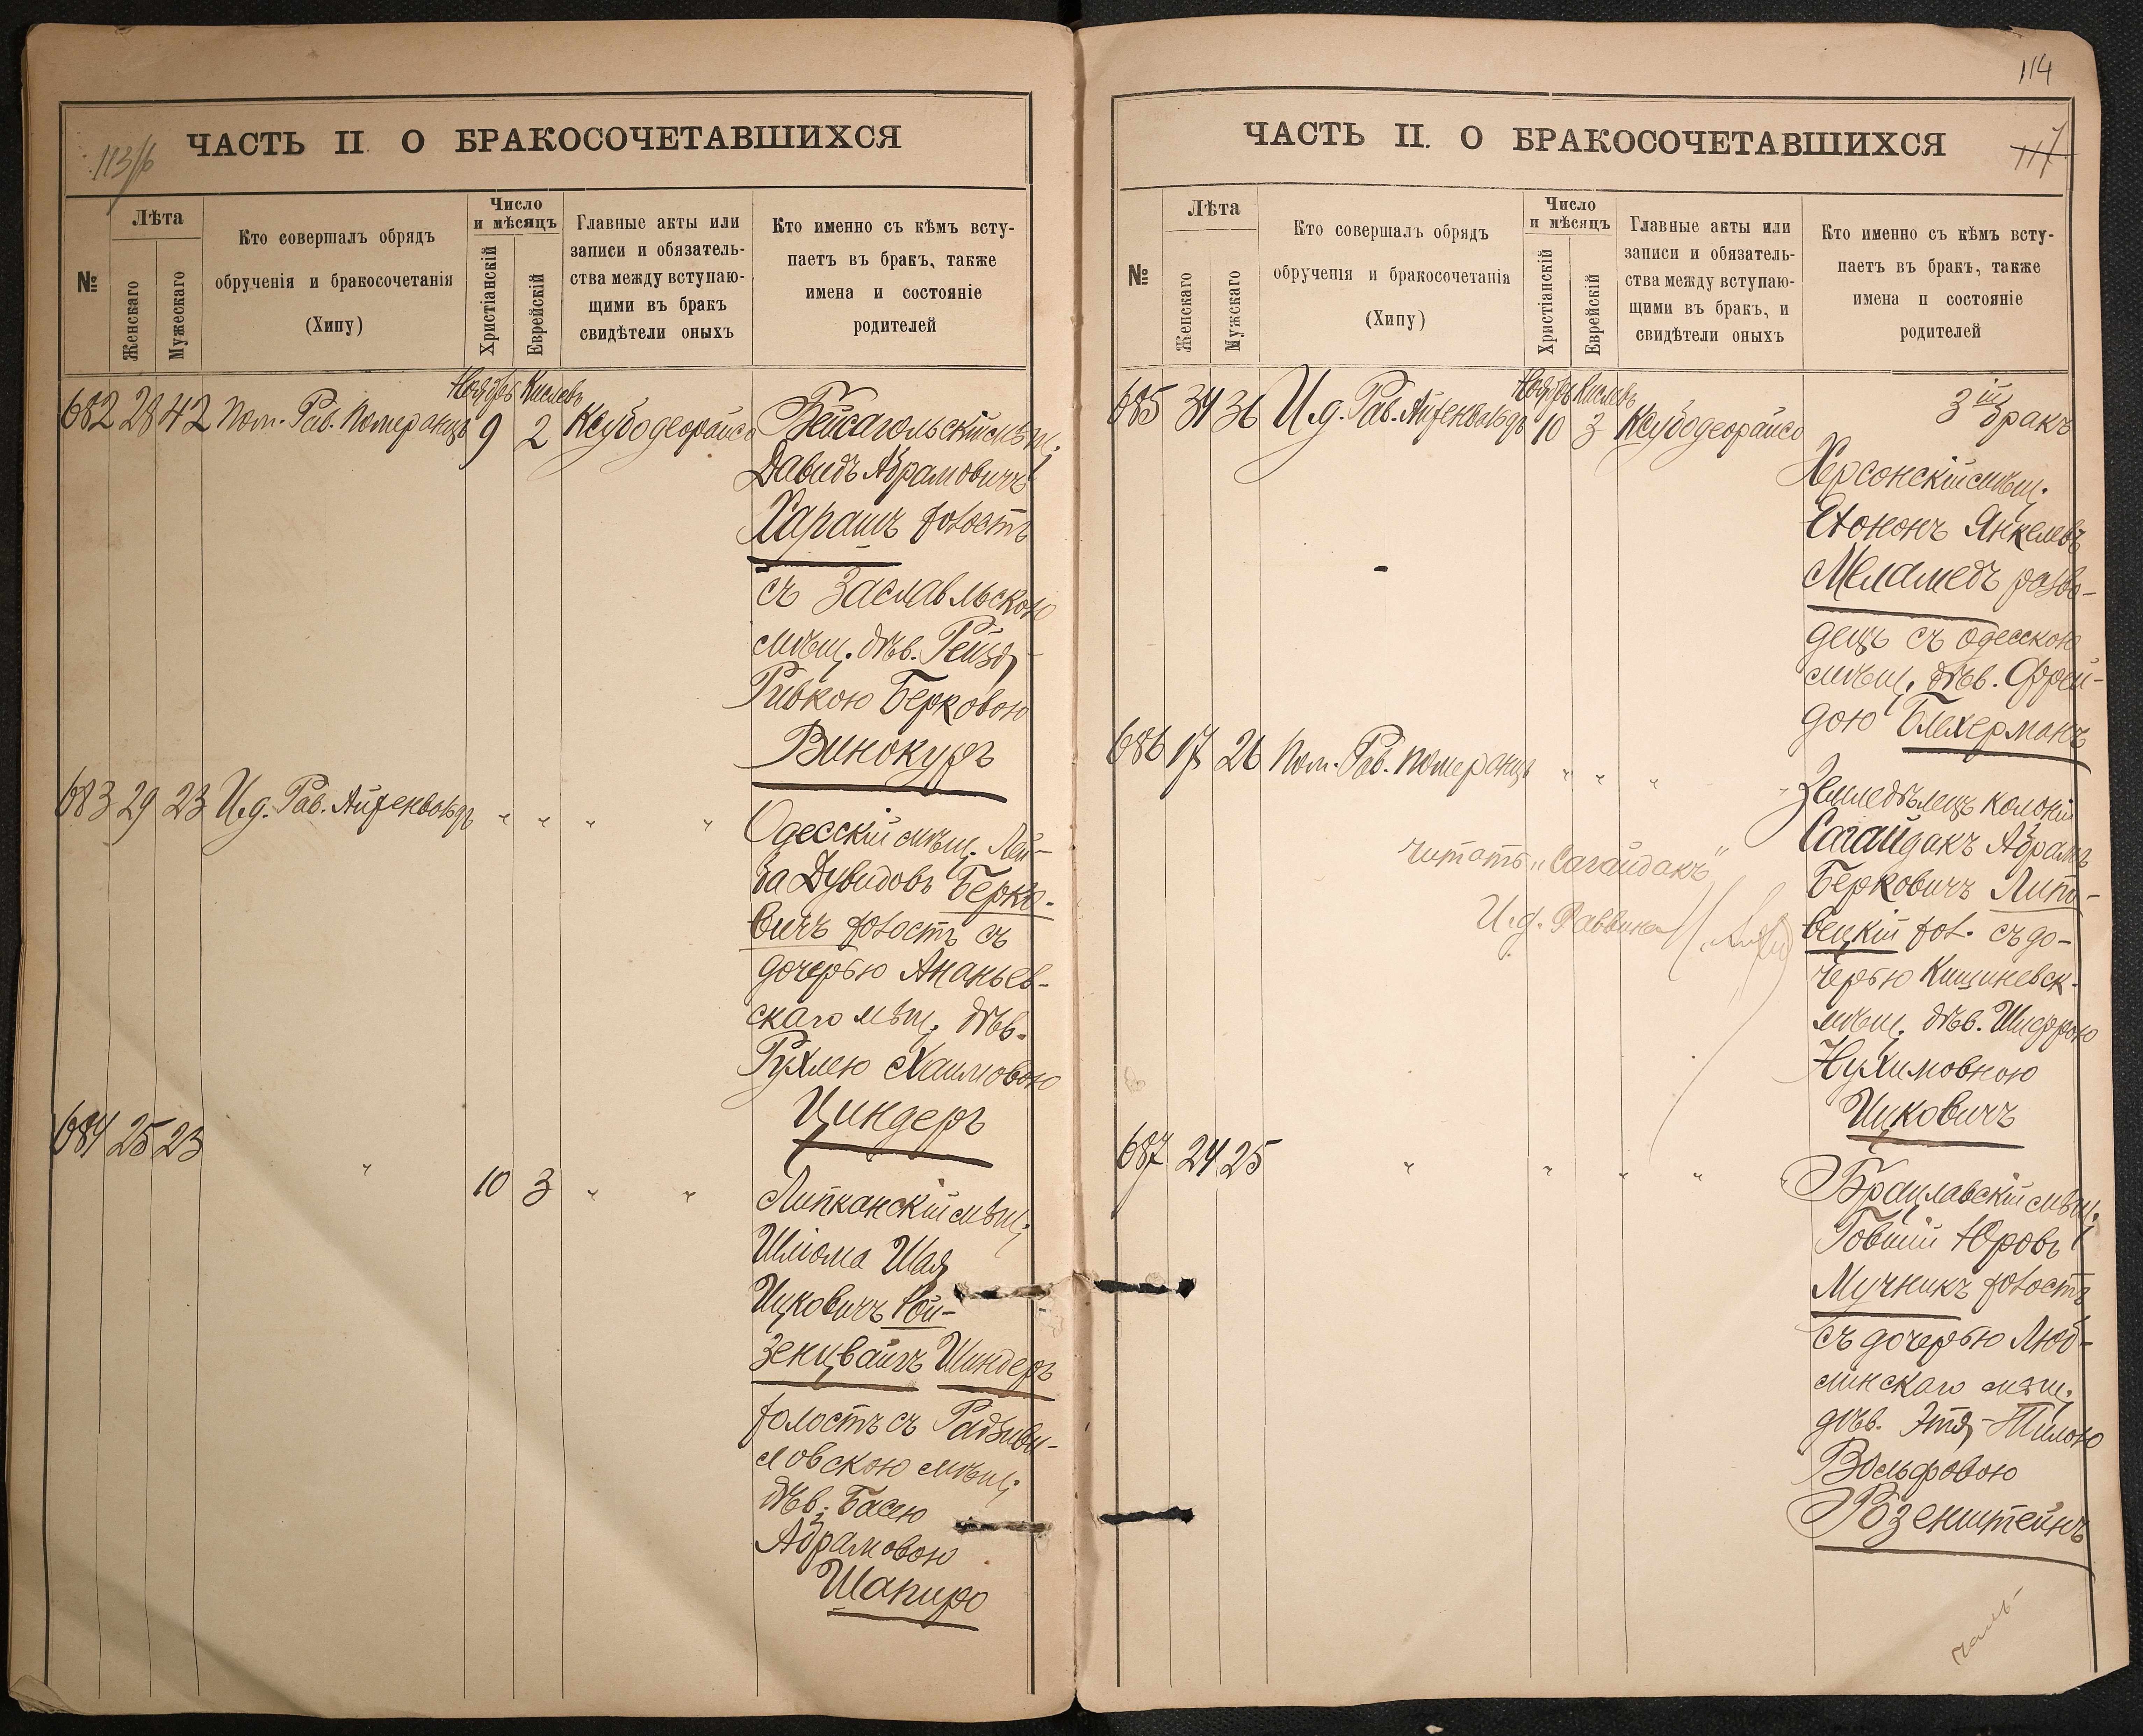 113/16
ЧАСТЬ II. О БРАКОСОЧЕТАВШИХСЯ
№
Лѣта
Женскаго
Мужескаго
Кто совершалъ обрядъ
обрученія и бракосочетанія
(Хипу)
Число
и мѣсяцъ
Христіанскій
Еврейскій
Главные акты или
записи и обязатель-
ства между вступаю-
щими въ бракъ
свидѣтели оныхъ
Кто именно съ кѣмъ всту-
паетъ въ бракъ, также
имена и состояніе
родителей
Ноябрь Кислевъ
682 28 42 Пом. Рав. Померанцъ 9 2 Ксубодеорайсо
Бейсагольскій мѣщ.
Давидъ Абрамовичъ
Харашъ холостъ
съ Заславльскою
мѣщ. дѣв. Рейзя
Ривкою Берковою
Винокуръ
683 29 23 И.д. Рав. Айзенвальдъ " " " "
Одесскій мѣщ. Лей-
ба Дувидовъ Берко-
вичъ холостъ съ
дочерью Ананьев-
скаго мѣщ. дѣв.
Рухлею Хаимовою
Циндеръ
684 25 23 " 10 3 " "
Липканскій мѣщ.
Шліома Шая
Ицковичъ Рой-
зенцвайгъ Шиндеръ
холостъ съ Радзиви-
ловскою мѣщ.
дѣв. Басею
Абрамовою
Шапиро
114
117
ЧАСТЬ II. О БРАКОСОЧЕТАВШИХСЯ
№
Лѣта
Женскаго
Мужскаго
Кто совершалъ обрядъ
обрученія и бракосочетанія
(Хипу)
Число
и мѣсяцъ
Христіанскій
Еврейскій
Главные акты или
записи и обязатель-
ства между вступаю-
щими въ бракъ, и
свидѣтели оныхъ
Кто именно съ кѣмъ всту-
паетъ въ бракъ, также
имена и состояніе
родителей
Ноябрь Кислевъ
685 34 36 И.д. Рав. Айзенвальдъ 10 3 Ксубодеорайсо
3ій бракъ
Херсонскій мѣщ.
Ехононъ Янкелевъ
Меламедъ разво-
децъ съ одесскою
мѣщ. дѣв. Фрей-
дою Блехерманъ
686 17 26 Пом. Рав. Померанцъ " " "
Земледѣлецъ колоніи
Сагайдакъ Абрамъ
Берковичъ Липо-
вецкій хол. съ до-
черью Кишиневск.
мѣщ. дѣв. Шифрою
Нухимовною
Ицковичъ
читать "Сагайдакъ"
И.д. Раввина
687 24 25 " " " "
Брацлавскій мѣщ.
Говшій Юровъ
Мучникъ холостъ
съ дочерью Люб-
линскаго мѣщ.
дѣв. Этя-Тилою
Вольфовою
Розенштейнъ